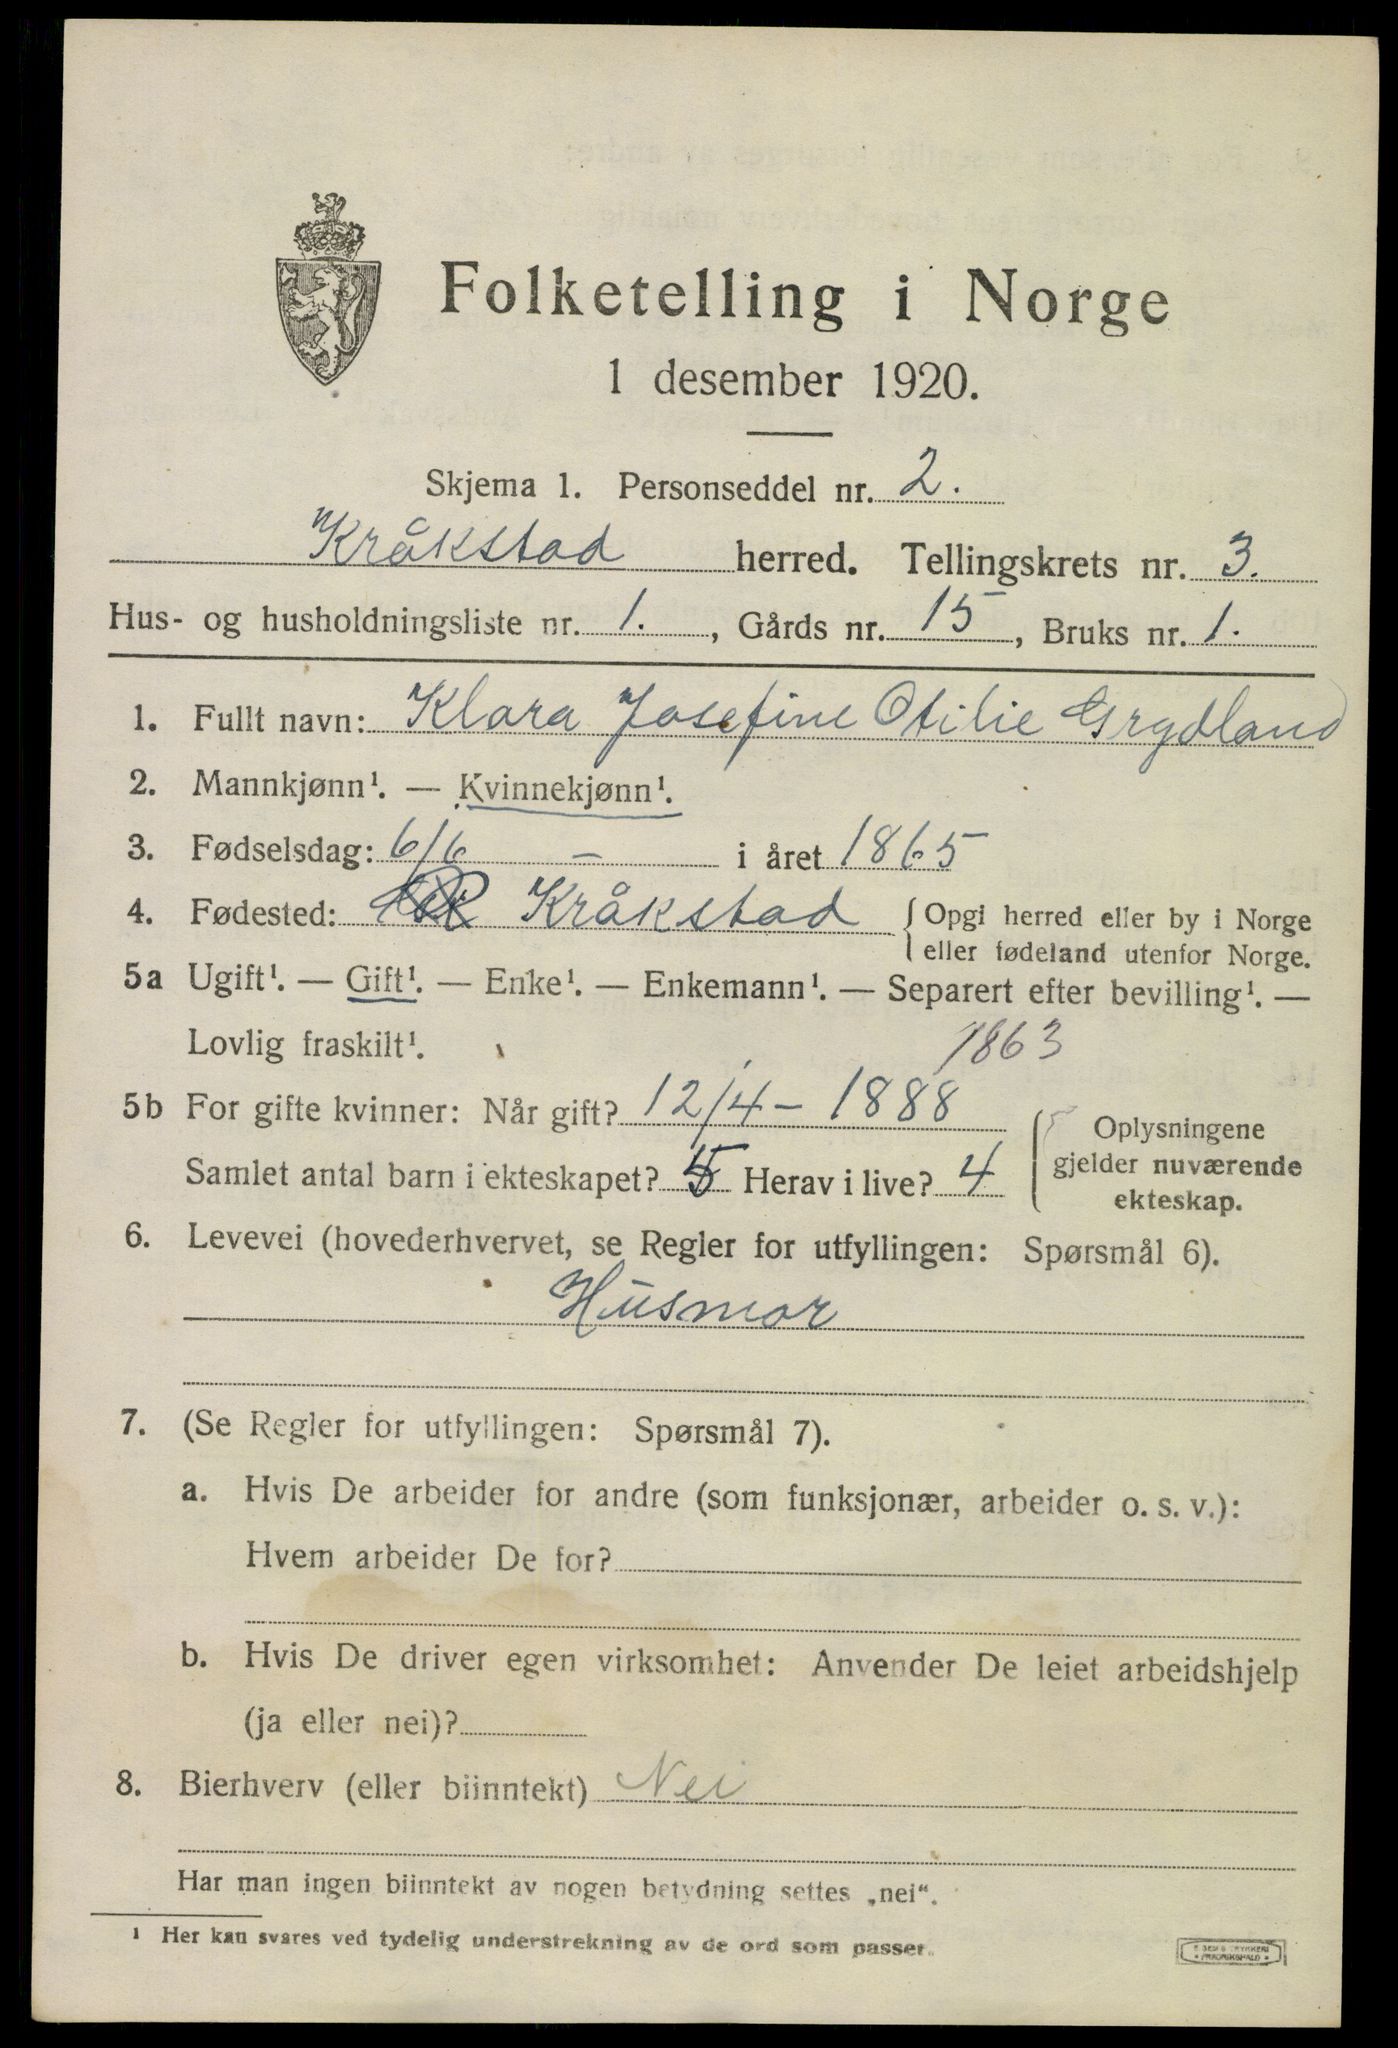 Folketelling i Norge
1 desember 1920.
Skjema 1. Personseddel nr. 2.
Kråkstad herred. Tellingskrets nr. 3.
Hus- og husholdningsliste nr. 1., Gårds nr. 15, Bruks nr. 1.
1. Fullt navn: Klara Josefine Otilie Grydland
2. Mannkjønn¹. — Kvinnekjønn¹.
3. Fødselsdag: 6/6 — i året 1865
4. Fødested: Kråkstad { Opgi herred eller by i Norge
eller fødeland utenfor Norge.
5a Ugift¹. — Gift¹. — Enke¹. — Enkemann¹. — Separert efter bevilling¹. —
Lovlig fraskilt¹. 1863
5b For gifte kvinner: Når gift? 12/4 – 1888
Samlet antal barn i ekteskapet? 5 Herav i live? 4
Oplysningene
gjelder nuværende
ekteskap.
6. Levevei (hovederhvervet, se Regler for utfyllingen: Spørsmål 6).
Husmor
7. (Se Regler for utfyllingen: Spørsmål 7).
a. Hvis De arbeider for andre (som funksjonær, arbeider o. s. v.):
Hvem arbeider De for?
b. Hvis De driver egen virksomhet: Anvender De leiet arbeidshjelp
(ja eller nei)?
8. Bierhverv (eller biinntekt) Nei
Har man ingen biinntekt av nogen betydning settes „nei“.
¹ Her kan svares ved tydelig understrekning av de ord som passer.